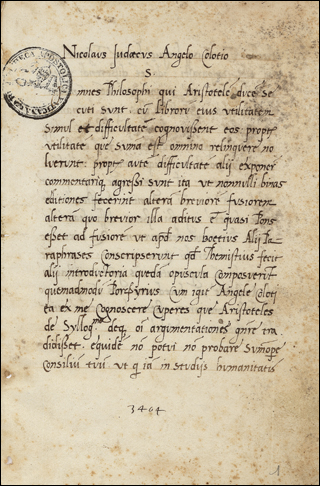 TECA APOSTOLICA VATICANA
Nicolaus Iudæcus Angelo Colotio
S
mnes Philosophi qui Aristotelẽ ducẽ se
cuti sunt. cũ Librorũ eius utilitatem
simul et difficultatẽ cognouissent eos propt
utilitatẽ que suma est omnino relinquere no
luerunt: propt autẽ difficultatẽ alij exponere
agressi sunt ita ut nonnulli binas
editiones fecerint alterã breuiorẽ fusiorem
alterã quo breuior illa aditus et quasi Pons
esset ad fusiorẽ ut apd nos boetius Alij Pa-
raphrases conscripserunt qd Themistius fecit
alij introductoria quedã opuscula composuerũt
quemadmodũ Porphyrius Cum igit Angele Coloti
ita ex me cognoscere cuperes que Aristoteles
de Syllog deq oi argumentationẽs gnre tra
didisset. equidẽ nõ potui nõ probare sumope
consiliũ tuũ ut q ia in studijs humanitatis
3464
1